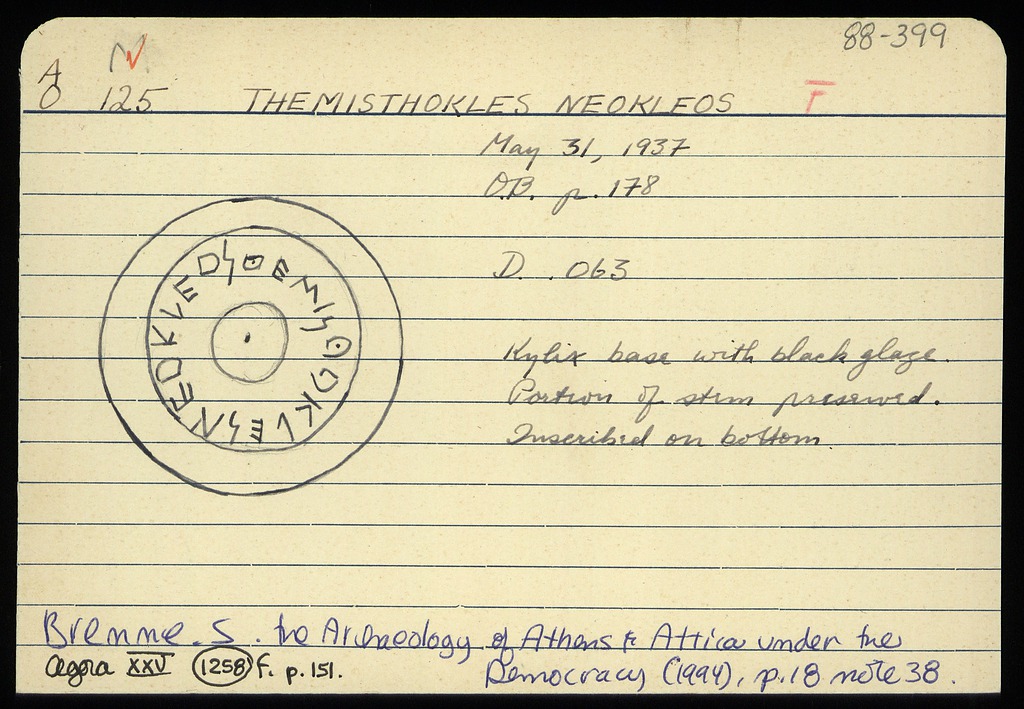 88-399
N
AO 125 THEMISTHOKLES NEOKLEOS Γ
May 31, 1937
O.B. p. 178
D. .063
ΘEMISΘOKLESNEOKLEOS
Kylix base with black glaze.
Portion of stem preserved.
Inscribed on bottom
Bremme. S. the Archaeology of Athens & Attica under the
Democracy (1994), p.18 note 38.
Agora XXV 1258 f. p.151.